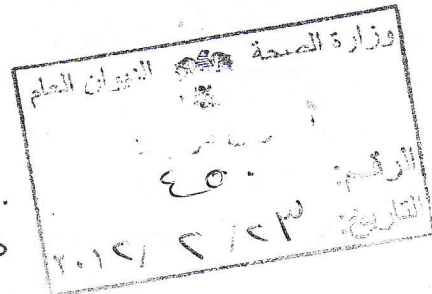 وزارة الصحة الديوان العام
الرقم: ٤٥٠
التاريخ: ٢٣ / ٢ / ٢٠١٢